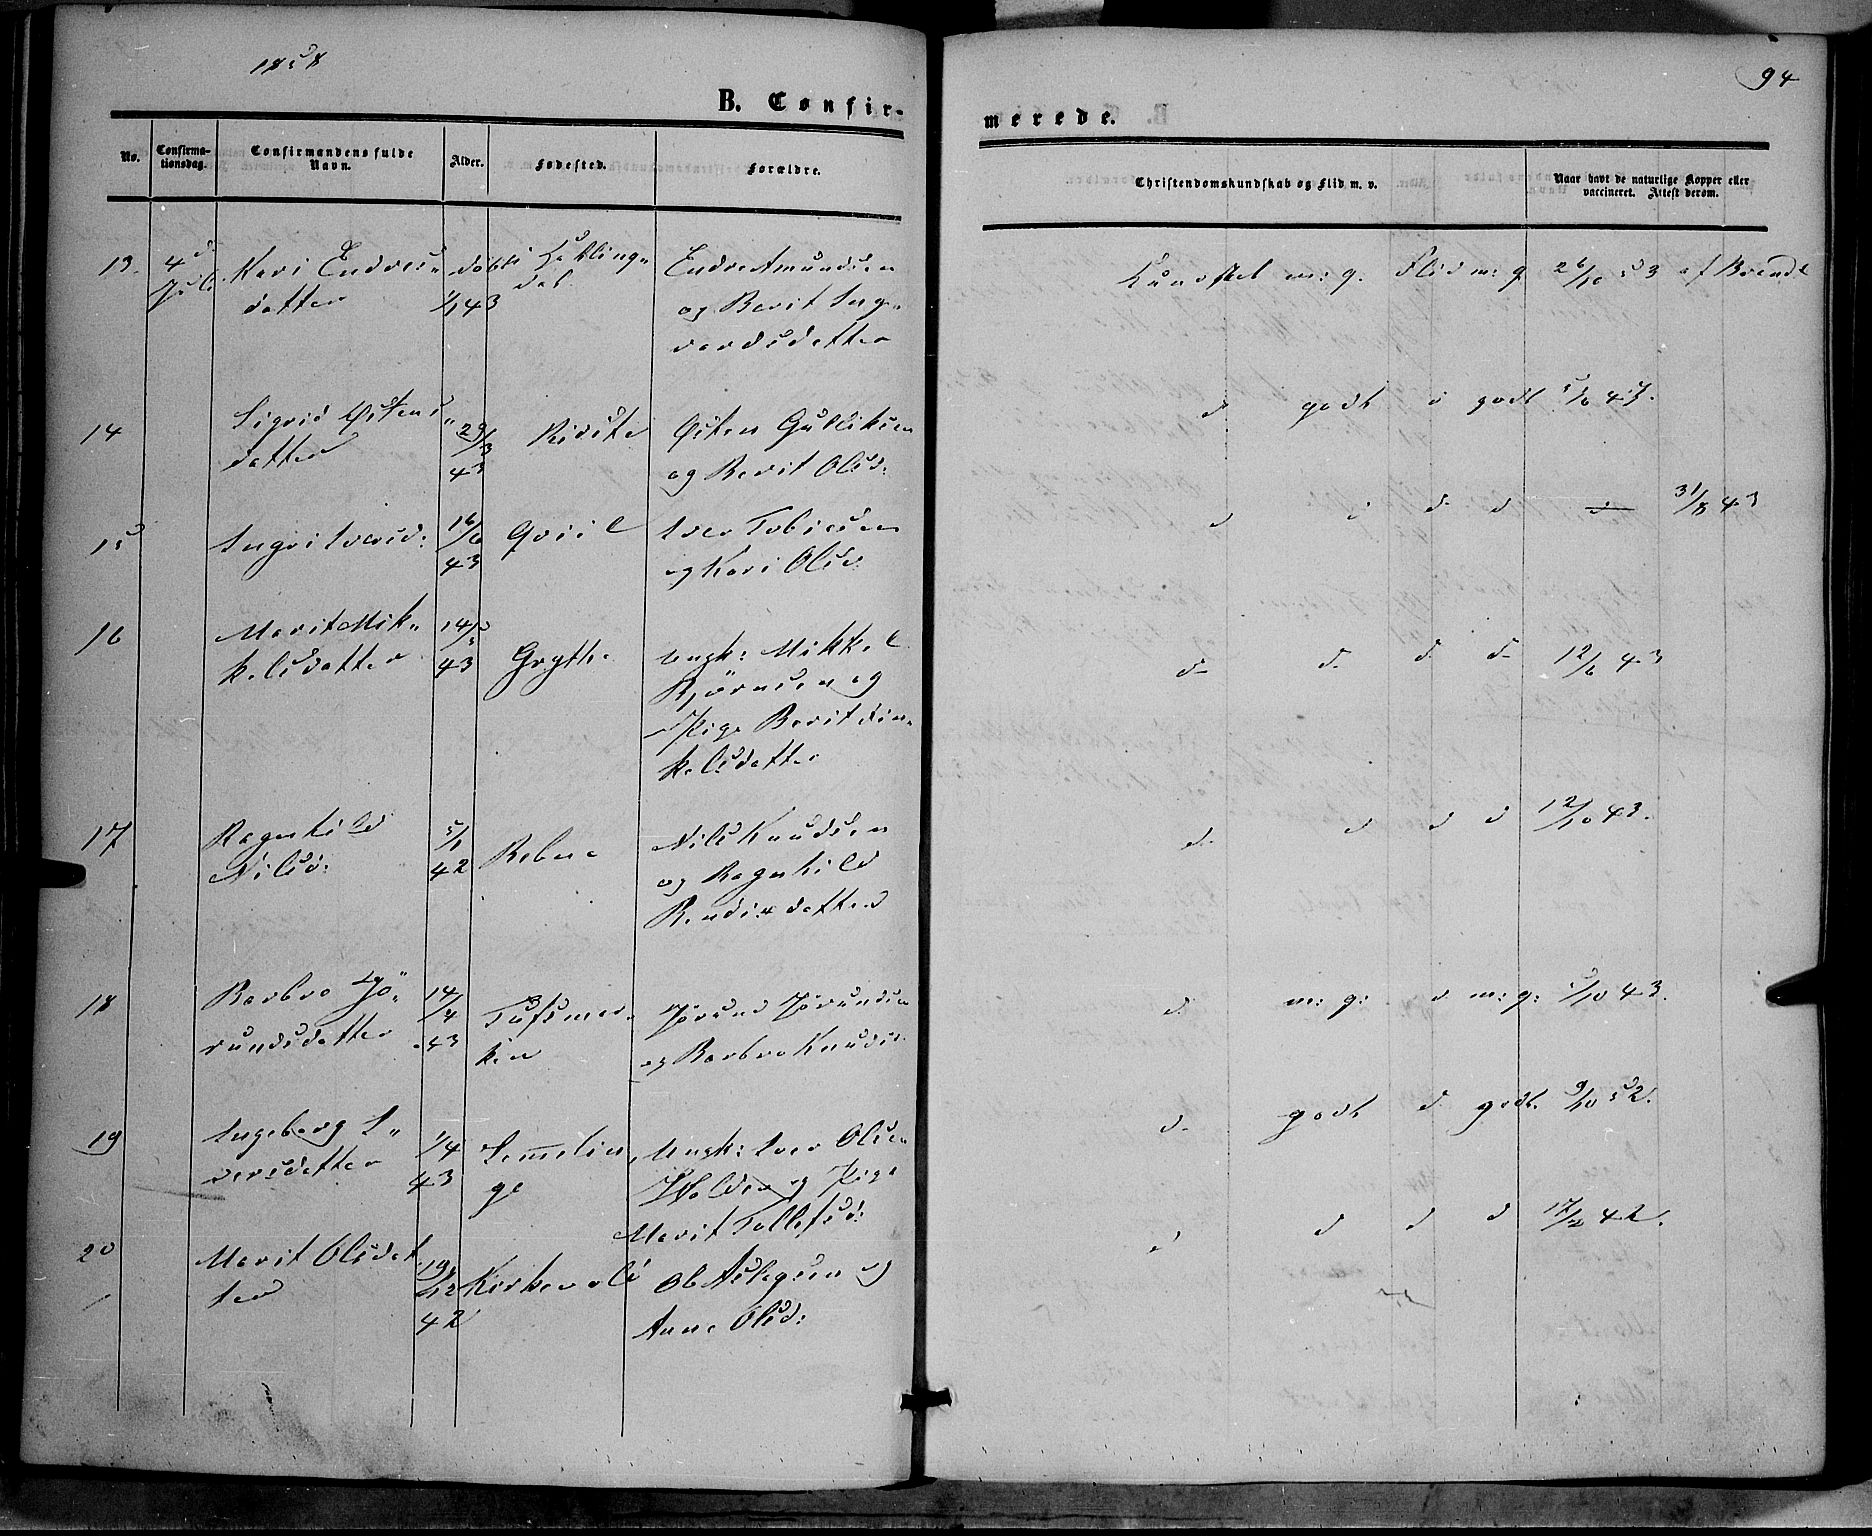 1858
94
B. Confir-
merede.
No.
Confirma-
tionsdag.
Confirmandens fulde
Navn.
Alder.
Fødested.
Forældre.
Christendomskundskab og Flid m. v.
Naar havt de naturlige Kopper eller
vaccineret. Attest derom.
13.
4d
Juli
Kari Endres-
datter
døbt
1/1 43
i Halling-
dal
Endre Amundsen
og Berit Ing-
vardsdatter
Kundskab m: g. Flid m: g 26/10 53 af Brende
14
Sigrid Østens-
datter
29/3
43
Risste
Østen Gulliksen
og Berit Olsd:
d godt d godt 5/6 47.
15
Ingri Iversd:
16/6
43
Qviil
Iver Tobiesen
og Kari Olsd.
d d d d 31/8 43
16
Marit Mik-
kelsdatter
14/5
43
Grythe
Ungk: Mikkel
Bjørnsen og
Pige Berit
kelsdatter
d d. d d 12/6 43
17
Ragnhild
Nilsd:
5/1
42
Rebne
Nils Knudsen
og Ragnhild
Bendixdatter
d. d d d 12/10 43.
18
Barbro Jö-
rundsdatter
14/4
43
Tufsmar-
ken
Jörund Jörundsen
og Barbro Knudsd.
d. m: g: d m: g: /10 43.
19
Ingeborg I-
versdatter
1/4
43
Semelin-
ge
Ungk: Iver Olsen
Wolden og Pige
Marit Tollefsd:
d. godt d. godt. 9/10 52.
20
Marit Olsdat-
ter
19/12
42
Kirkevold
Ole Aslagsen og
Anne Olsd:
d d d d 17/2 42.